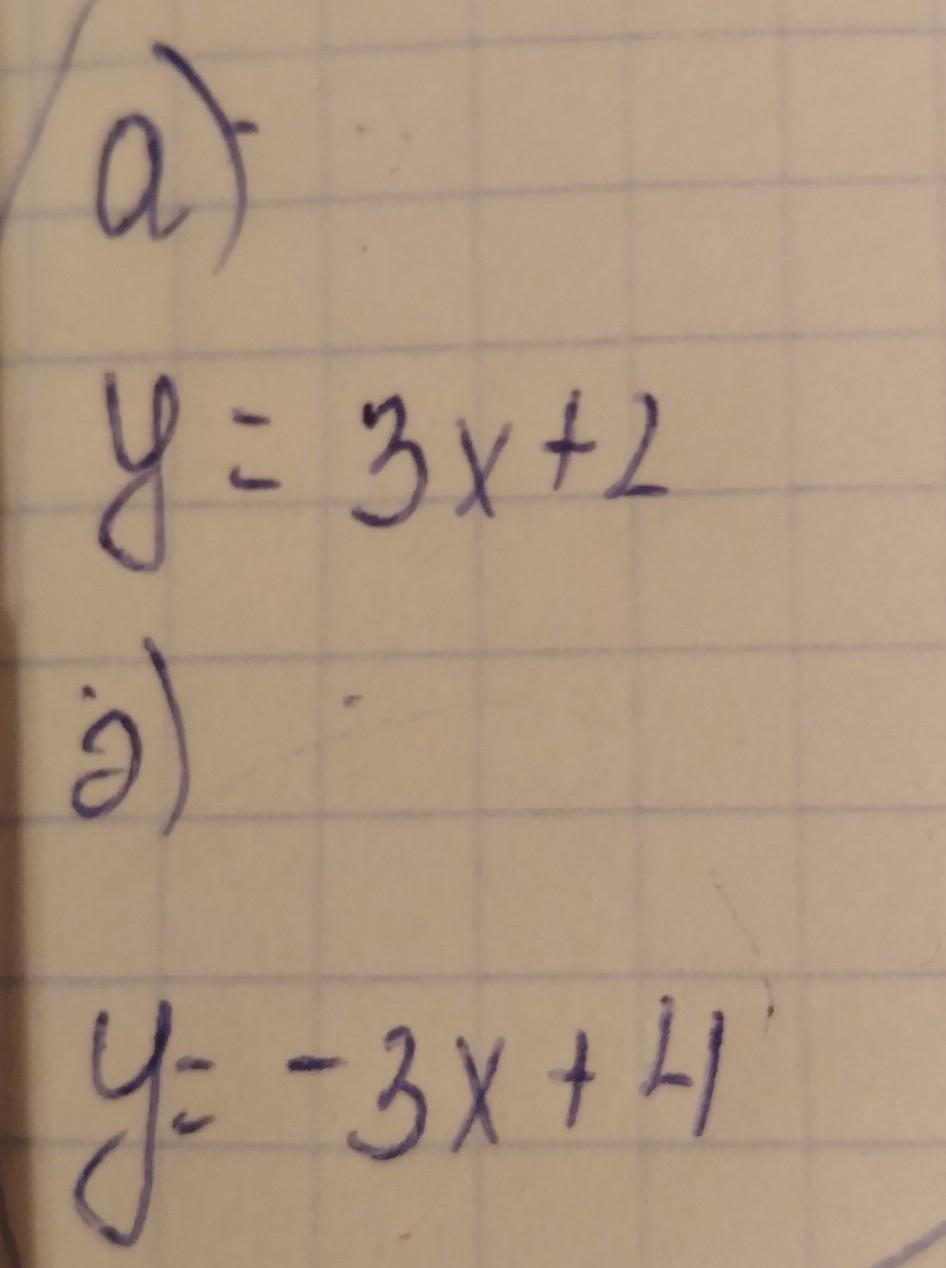 а)
y = 3x+2
д)
y = -3x + 4